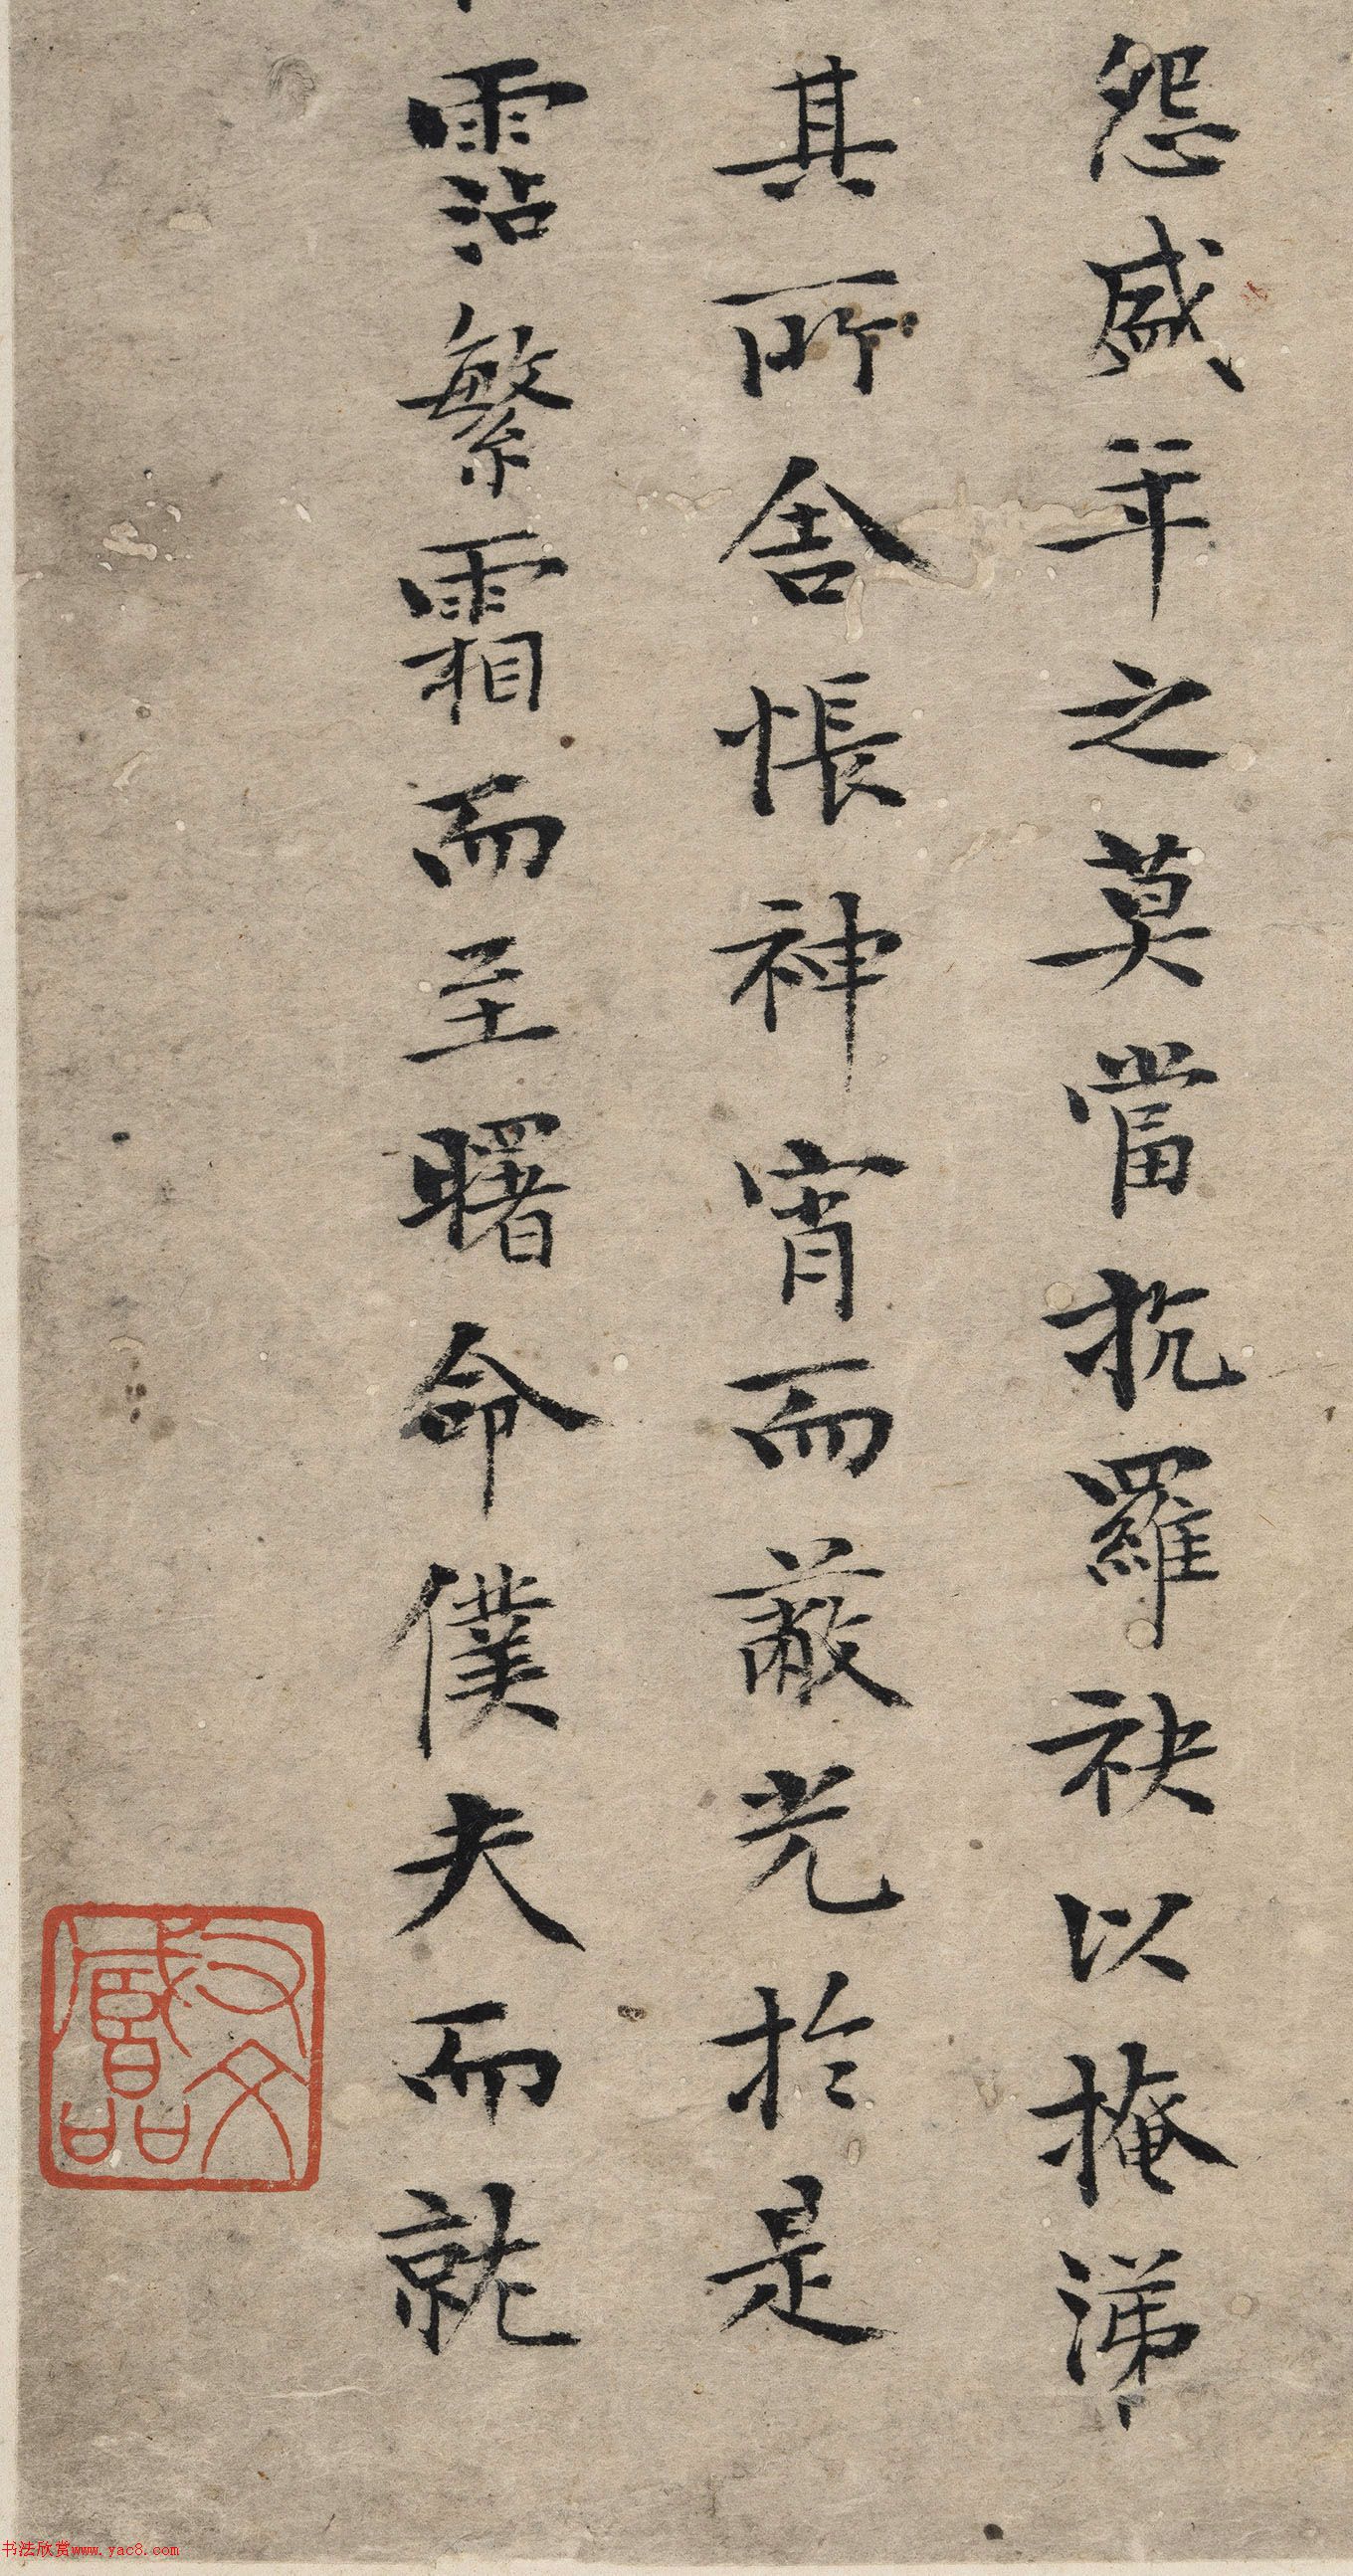 怨盛年之莫當抗羅袂以掩涕
其所舍悵神宵而蔽光於是
霑繁霜而至曙命僕夫而就
書法欣赏www.yac8.com